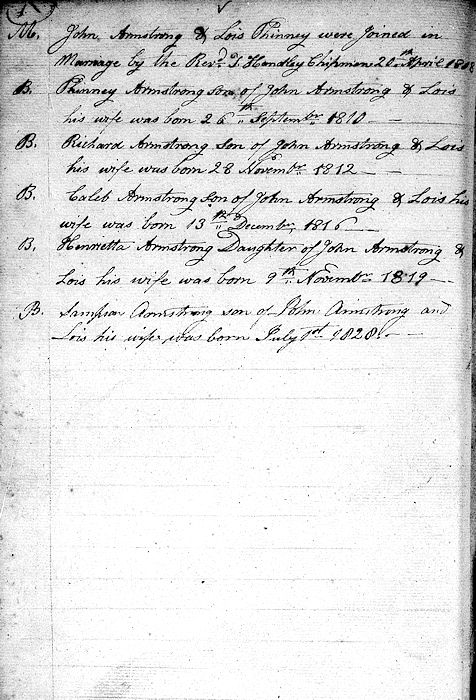 M. John Armstrong & Lois Phinney were Joined in
Marriage by the Revd. T. Handley Chipman 20th April
B. Phinney Armstrong son of John Armstrong & Lois
his wife was born 26th Septembr 1810
B. Richard Armstrong son of John Armstrong & Lois
his wife was born 28 Novembr 1812
B. Caleb Armstrong son of John Armstrong & Lois his
wife was born 13th Decembr 1816
B. Henrietta Armstrong Daughter of John Armstrong &
Lois his wife was born 9th Novembr 1819
B. Armstrong son of John Armstrong and
Lois his wife was born July 1st 1828.